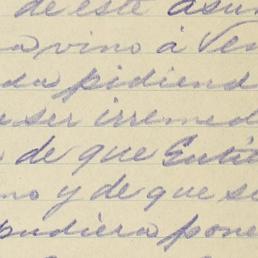 de este asun
a vino á Ven
da pidiend
ser irremed
de que Entit
no y de que se
pudiera pone